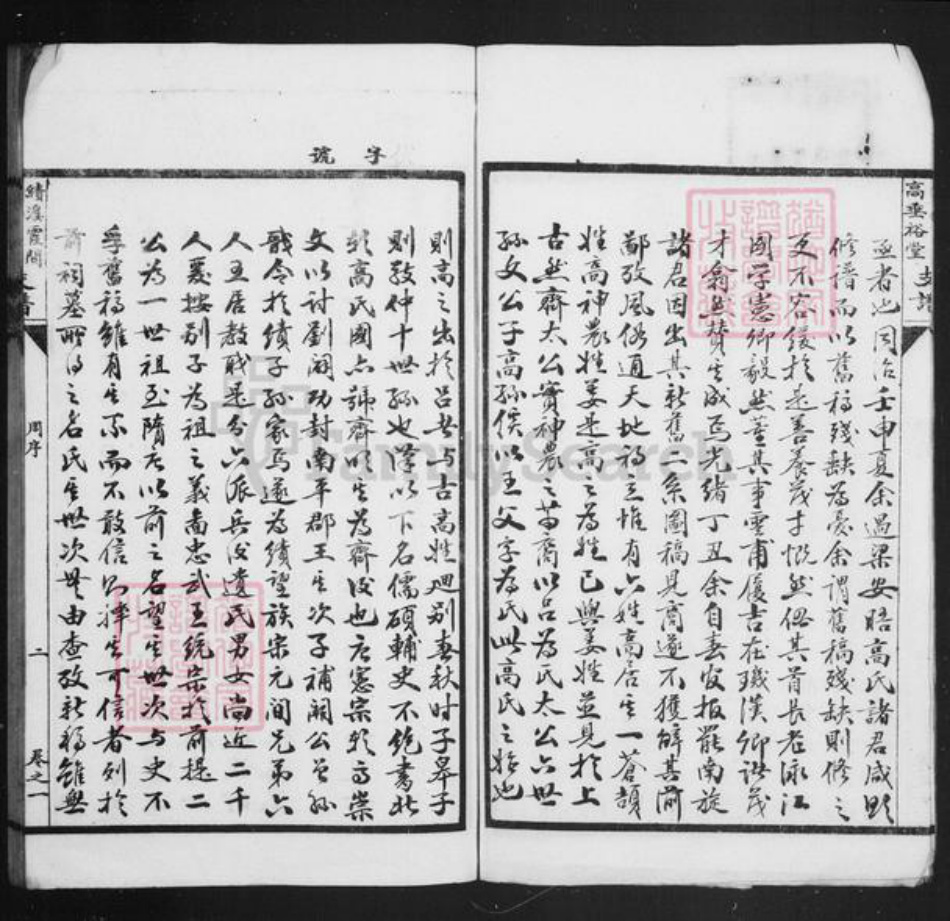 高垂裕堂
支譜
亟者也同治壬申夏余過梁安晤高氏諸君咸興
修譜而以舊稿殘缺為憂余謂舊稿殘缺則修之
更不容緩於是善養茂才慨然偕其首長老泳江
國學憲卿毅然董其事雲甫履吉在璣漢卿諸茂
才翕然贊生成焉光緒丁丑余自春官報罷南旋
諸君因出其新舊二系圖稿見商遂不獲辭其前
鄙攷風俗通天地初立惟有六姓高居生一蒼頡
姓高神農姓姜是高之為姓已與姜姓並見於上
古然齊太公實神農之苗裔以呂為氏太公六世
孫文公子高孫傒以王父字為氏此高氏之始也
字號
則高之出於呂其与古高姓迥別春秋時子皋子
則敬仲十世孫也漢以下名儒碩輔史不絕書北
朝高氏國亦號齊以生為齊後也唐憲宗朝高崇
文以討劉闢功封南平郡王生次子補闕公曾孫
戩令於績子孫家焉遂為績望族宋元間兄弟六
人五居教職是分六派兵後遺民男女尚近二千
人爰按別子為祖之義尚忠武王統宗於前提二
公為一世祖至隋唐以前之名望生世次与史不
孚舊稿雖有生系而不敢信以擇生可信者列於
前祠墓所得之名氏生世次無由查攷新稿雖與
績溪霞間
支譜
周序
二
卷之一
FamilySearch